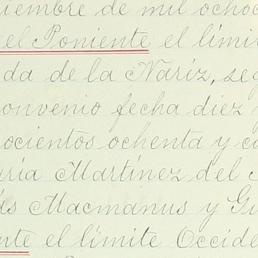 iembre de mil ochoc
el Poniente el límit
da de la Nariz, se
convenio fecha diez
ocientos ochenta y c
aría Martinez del
ás Macmanus y Gu
nte el límite Occide